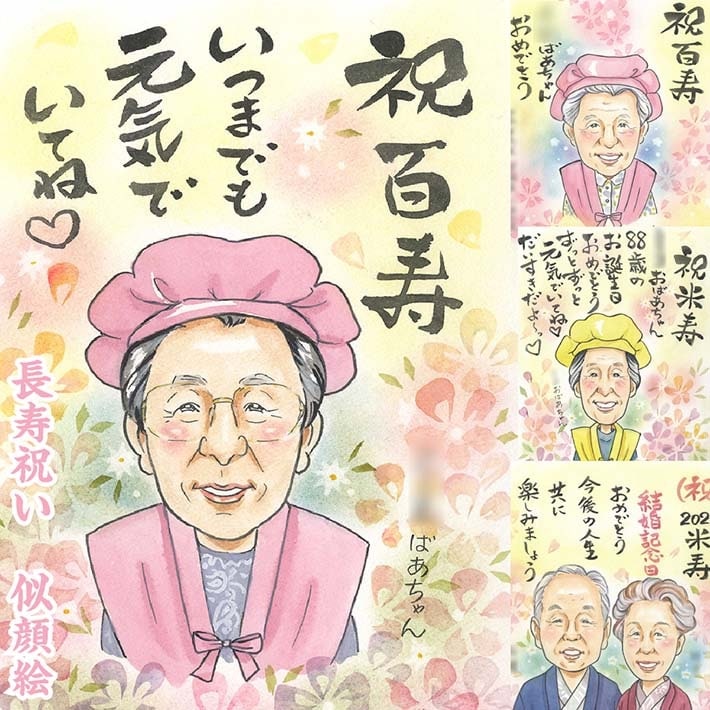 祝百寿
いつまでも
元気で
いてね♡
ばあちゃん
長寿祝い
似顔絵
祝百寿
ばあちゃん
おめでとう
祝米寿
おばあちゃん
88歳の
お誕生日
おめでとう
ずっとずっと
元気でいてね♡
だいすきだよ〜っ♡
おばあちゃん
(祝
202 米寿
結婚記念日
おめでとう
今後の人生
共に
楽しみましょう